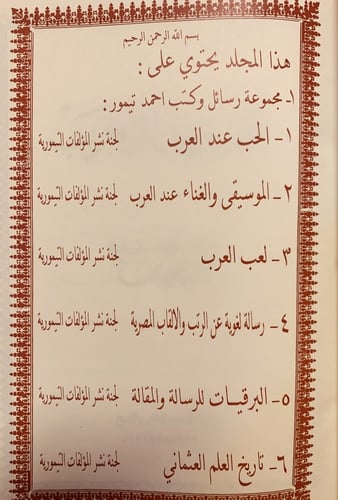 بسم الله الرحمن الرحيم
هذا المجلد يحتوي على :
١ـ مجموعة رسائل وكتب احمد تيمور :
١ - الحب عند العرب لجنة نشر المؤلفات التيمورية
٢ - الموسيقى والغناء عند العرب لجنة نشر المؤلفات التيمورية
٣ - لعب العرب لجنة نشر المؤلفات التيمورية
٤ - رسالة لغوية عن الرتب والالقاب المصرية لجنة نشر المؤلفات التيمورية
٥ - البرقيات للرسالة والمقالة لجنة نشر المؤلفات التيمورية
٦ - تاريخ العلم العثماني لجنة نشر المؤلفات التيمورية